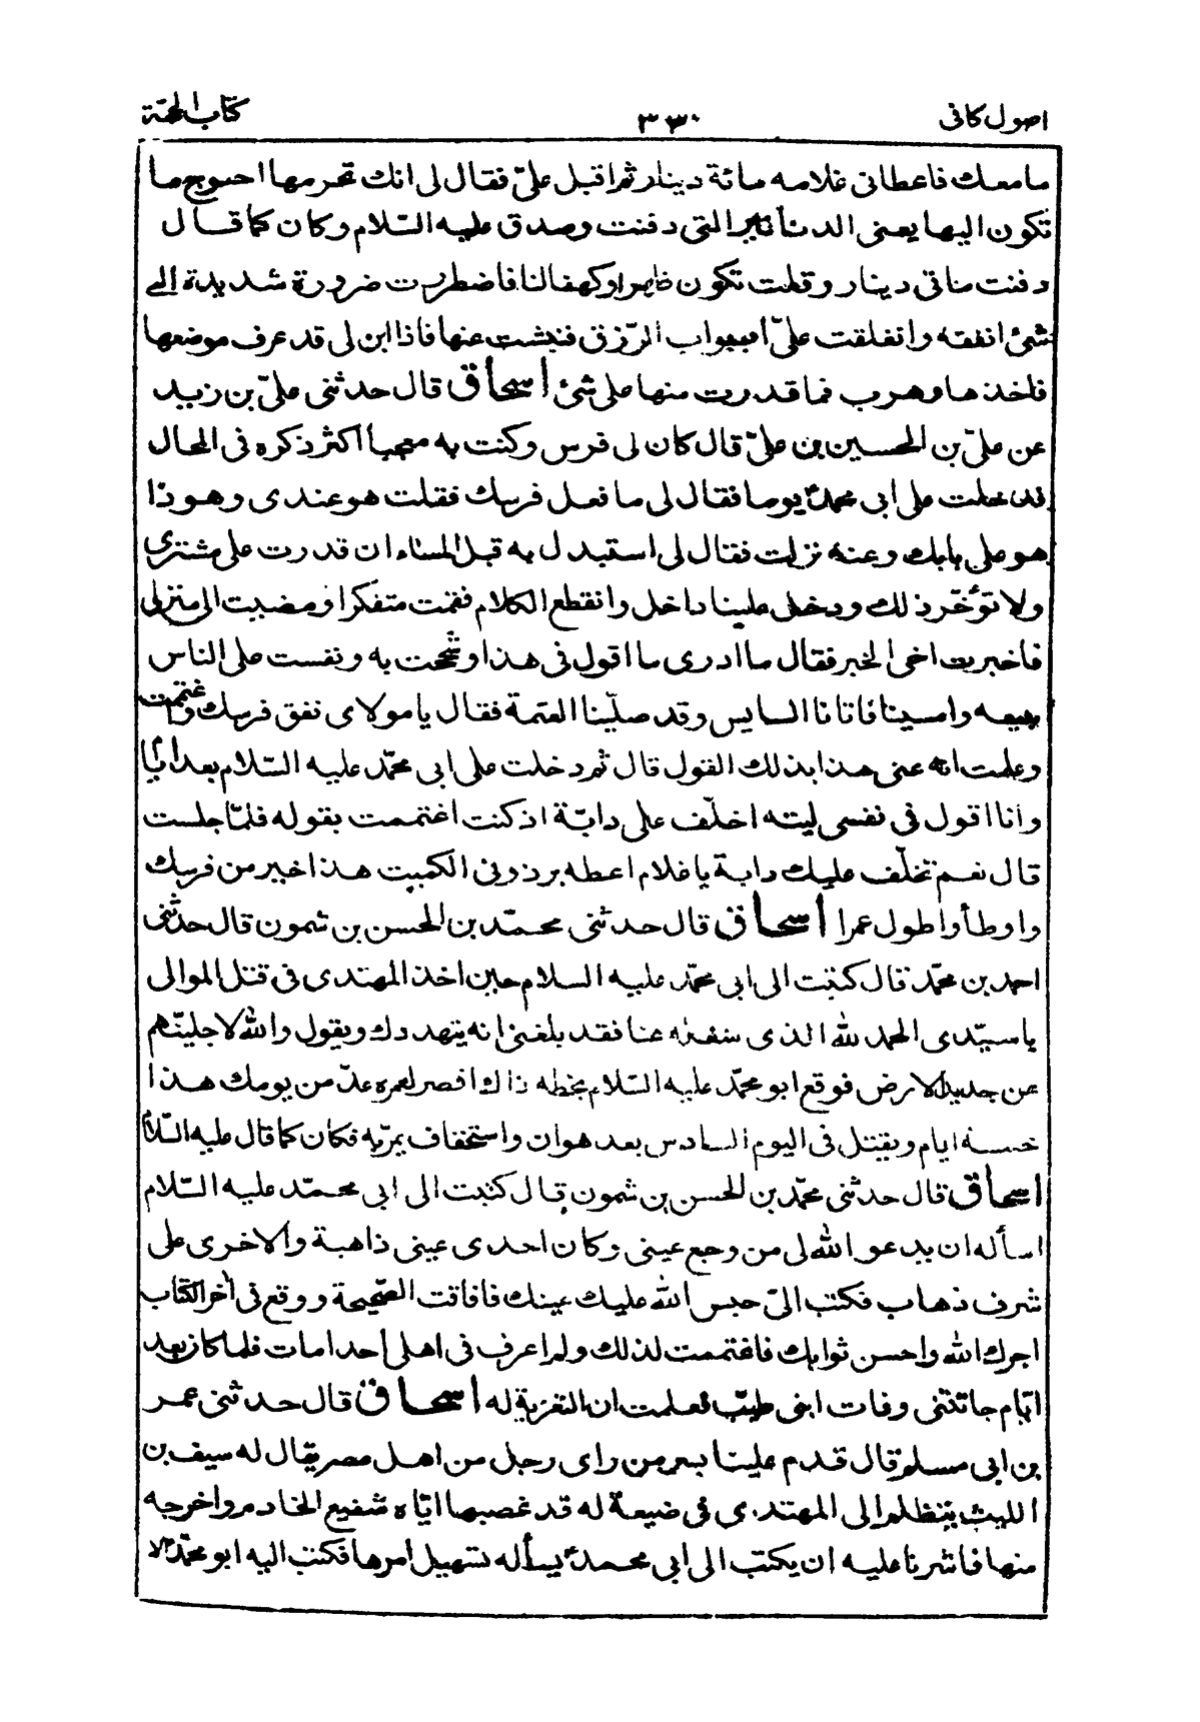 اصول كافى ٣٣٠ كتاب الحجّة
ما معك فاعطانى غلامه مائة دينار ثم اقبل علىّ فقال لى انك تحرمها احوج ما
تكون اليها يعنى الدنانير التى دفنت وصدق عليه السّلام وكان كما قال
دفنت مائتى دينار وقلت تكون ظهرا وكهفا لنا فاضطررت ضرورة شديدة الى
شئ انفقه وانغلقت علىّ ابواب الرّزق فنبشت عنها فاذا ابن لى قد عرف موضعها
فاخذها وهرب فما قدرت منها على شئ اسحاق قال حدثنى علىّ بن زيد
عن علىّ بن الحسين بن علىّ قال كان لى فرس وكنت به معجبا اكثر ذكره فى المحال
فدخلت على ابى محمدؑ يوما فقال لى ما فعل فرسك فقلت هو عندى وهو ذا
هو على بابك وعنه نزلت فقال لى استبدل به قبل المساء ان قدرت على مشترى
ولا تؤخّر ذلك ودخل علينا داخل وانقطع الكلام فقمت متفكرا ومضيت الى منزلى
فاخبرت اخى الخبر فقال ما ادرى ما اقول فى هذا وشححت به ونفست على الناس
ببيعه وامسينا فاتانا السايس وقد صلّينا العتمة فقال يا مولاى نفق فرسك واغتممت
وعلمت انه عنى هذا بذلك القول قال ثم دخلت على ابى محمّد عليه السّلام بعد ايّام
وانا اقول فى نفسى ليته اخلّف على دابّة اذ كنت اغتممت بقوله فلمّا جلست
قال نعم نخلّف عليك دابة يا غلام اعطه برذونى الكميت هذا خير من فرسك
واوطأ واطول عمرا اسحاق قال حدثنى محمّد بن الحسن بن شمون قال حدثنى
احمد بن محمّد قال كتبت الى ابى محمّد عليه السلام حين اخذ المهتدى فى قتل الموالى
يا سيّدى الحمد لله الذى شغله عنا فقد بلغنى انه يتهددك ويقول والله لاجلينّهم
عن جديد الارض فوقع ابو محمّد عليه السّلام بخطه ذاك اقصر لعمره عدّ من يومك هذا
خمسة ايام ويقتل فى اليوم السادس بعد هوان واستخفاف يمرّ به فكان كما قال عليه السّلام
اسحاق قال حدثنى محمّد بن الحسن بن شمون قال كتبت الى ابى محمّد عليه السّلام
اسأله ان يدعو الله لى من وجع عينى وكان احدى عينى ذاهبة والاخرى على
شرف ذهاب فكتب الىّ حبس الله عليك عينك فافاقت الصّحيحة ووقع فى آخر الكتاب
اجرك الله واحسن ثوابك فاغتممت لذلك ولم اعرف فى اهلى احدا مات فلما كان بعد
ايّام جائتنى وفات ابنى طيّب فعلمت ان التعزية له اسحاق قال حدثنى عمر
بن ابى مسلم قال قدم علينا بسر من راى رجل من اهل مصر يقال له سيف بن
الليث يتظلم الى المهتدى فى ضيعة له قد غصبها ايّاه شفيع الخادم واخرجه
منها فاشرنا عليه ان يكتب الى ابى محمدؑ يسأله تسهيل امرها فكتب اليه ابو محمّدؑ لا